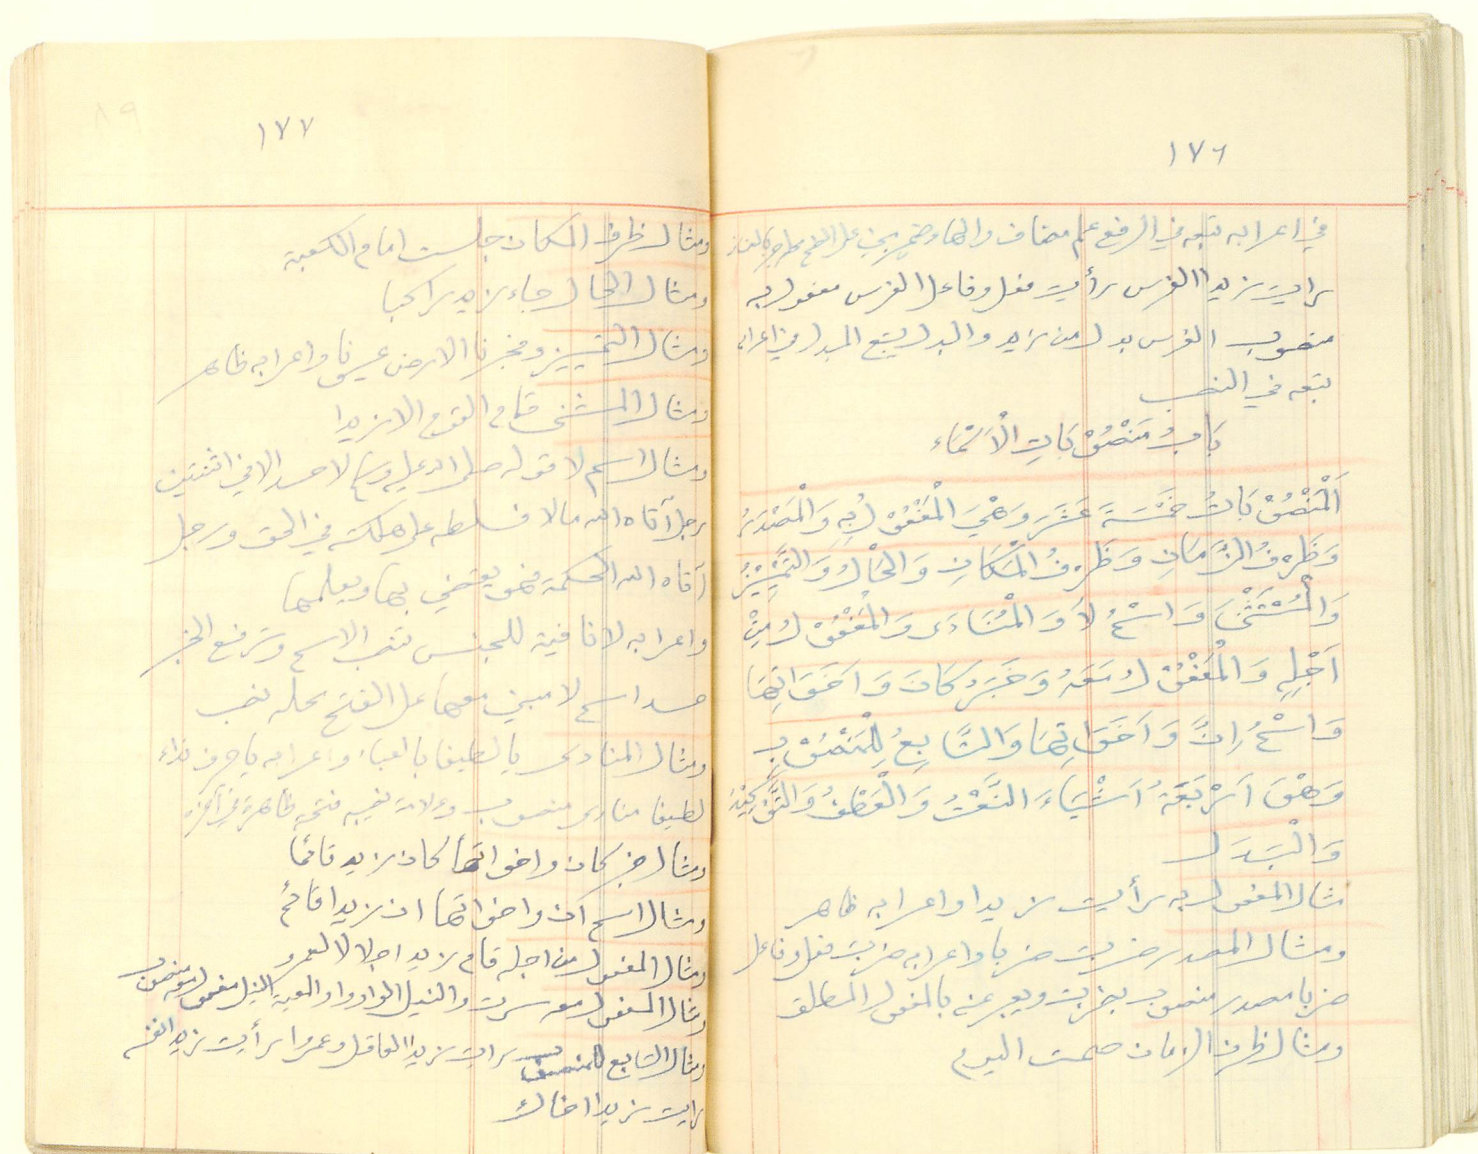 ١٧٦
في اعرابه تبعه في الرفع علم مضاف والهاء ضمير مبني على الضم
رايت زيدا الفرس رأيت فعل وفاعل الفرس مفعول به
منصوب الفرس بدل من زيد والبدل يتبع المبدل في اعرابه
تبعه في النصب
بَابُ مَنْصُوْبَاتِ الْاَسْمَاء
اَلْمَنْصُوْبَاتُ خَمْسَةَ عَشَرَ وَهْيَ الْمَفْعُوْلُ بِهِ وَالْمَصْدَرُ
وَظَرْفُ الزَّمَانِ وَظَرْفُ الْمَكَانِ وَالْحَالُ وَالتَّمْيِيْزُ
وَالْمُسْتَثْنَى وَاسْمُ لاَ وَالْمُنَادَى وَالْمَفْعُوْلُ مِنْ
اَجْلِهِ وَالْمَفْعُوْلُ مَعَهُ وَخَبَرُ كَانَ وَاَخَوَاتِهَا
وَاسْمُ اِنَّ وَاَخَوَاتِهَا وَالتَّابِعُ لِلْمَنْصُوْبِ
وَهْوَ اَرْبَعَةُ اَشْيَاءَ النَّعْتُ وَالْعَطْفُ وَالتَّوْكِيْدُ
وَالْبَدَل
مثال المفعول به رأيت زيدا واعرابه ظاهر
ومثال المصدر ضربت ضربا واعرابه ضربت فعل وفاعل
ضربا مصدر منصوب بضربت ويعبر عنه بالمفعول المطلق
ومثال ظرف الزمان صمت اليوم
١٧٧
ومثال ظرف المكان جلست امام الكعبة
ومثال الحال جاء زيد راكبا
ومثال التمييز وفجرنا الارض عيونا واعرابه ظاهر
ومثال المستثنى قام القوم الا زيدا
ومثال اسم لا قوله صلى الله عليه وسلم لا حسد الا في اثنتين
رجل آتاه الله مالا فسلطه على هلكته في الحق ورجل
آتاه الله الحكمة فهو يقضي بها ويعلمها
واعرابه لا نافية للجنس تنصب الاسم وترفع الخبر
حسد اسم لا مبني معها على الفتح محله نصب
ومثال المنادى يا لطيفا بالعباد واعرابه يا حرف نداء
لطيفا منادى منصوب وعلامة نصبه فتحه ظاهرة في آخره
ومثال خبر كان واخواتها كان زيد قائما
ومثال اسم ان واخواتها ان زيدا قائم
ومثال المفعول من اجله قام زيد اجلالا لعمرو
ومثال المفعول معه سرت والنيل الواو واو المعية النيل مفعول معه منصوب
ومثال التابع للمنصوب رايت زيدا العاقل وعمروا رأيت زيدا نفسه
رايت زيدا اخاك